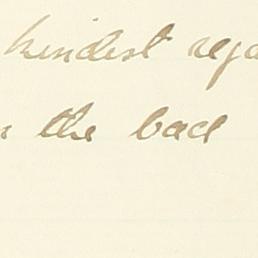 kindest rega
the bace